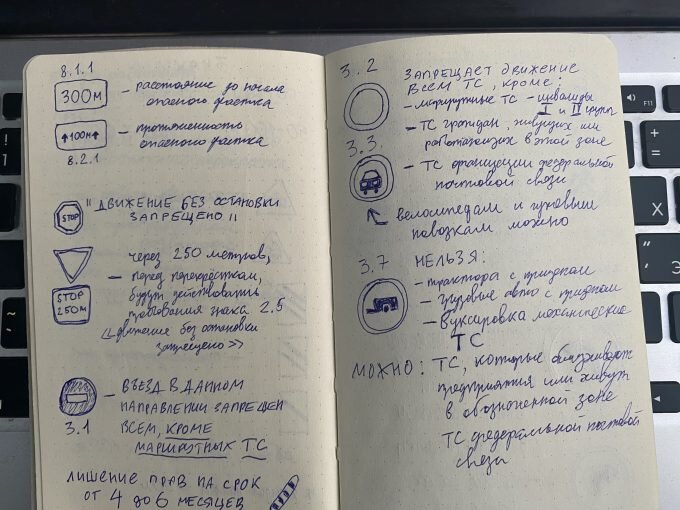 8.1.1
300м
– расстояние до начала
опасного участка
↑100м↑
– протяженность
опасного участка
8.2.1
STOP
"ДВИЖЕНИЕ БЕЗ ОСТАНОВКИ
ЗАПРЕЩЕНО"
через 250 метров,
– перед перекрёстком,
STOP
250м
будут действовать
требования знака 2.5
<<движение без остановки
запрещено>>
– ВЪЕЗД В ДАННОМ
НАПРАВЛЕНИИ ЗАПРЕЩЕН
3.1
ВСЕМ, КРОМЕ
МАРШРУТНЫХ ТС
ЛИШЕНИЕ ПРАВ НА СРОК
ОТ 4 ДО 6 МЕСЯЦЕВ
3.2
ЗАПРЕЩАЕТ ДВИЖЕНИЕ
ВСЕМ ТС, КРОМЕ:
– маршрутные ТС – инвалиды
I и II групп
– ТС граждан, живущих или
работающих в этой зоне
3.3
– ТС федеральной
почтовой связи
велосипедам и гужевым
повозкам можно
3.7
НЕЛЬЗЯ:
– трактора с прицепом
– грузовые авто с прицепом
– Буксировка механические
ТС
МОЖНО: ТС, которые обслуживают
предприятия или живут
в обозначенной зоне
ТС федеральной почтовой
связи
F11